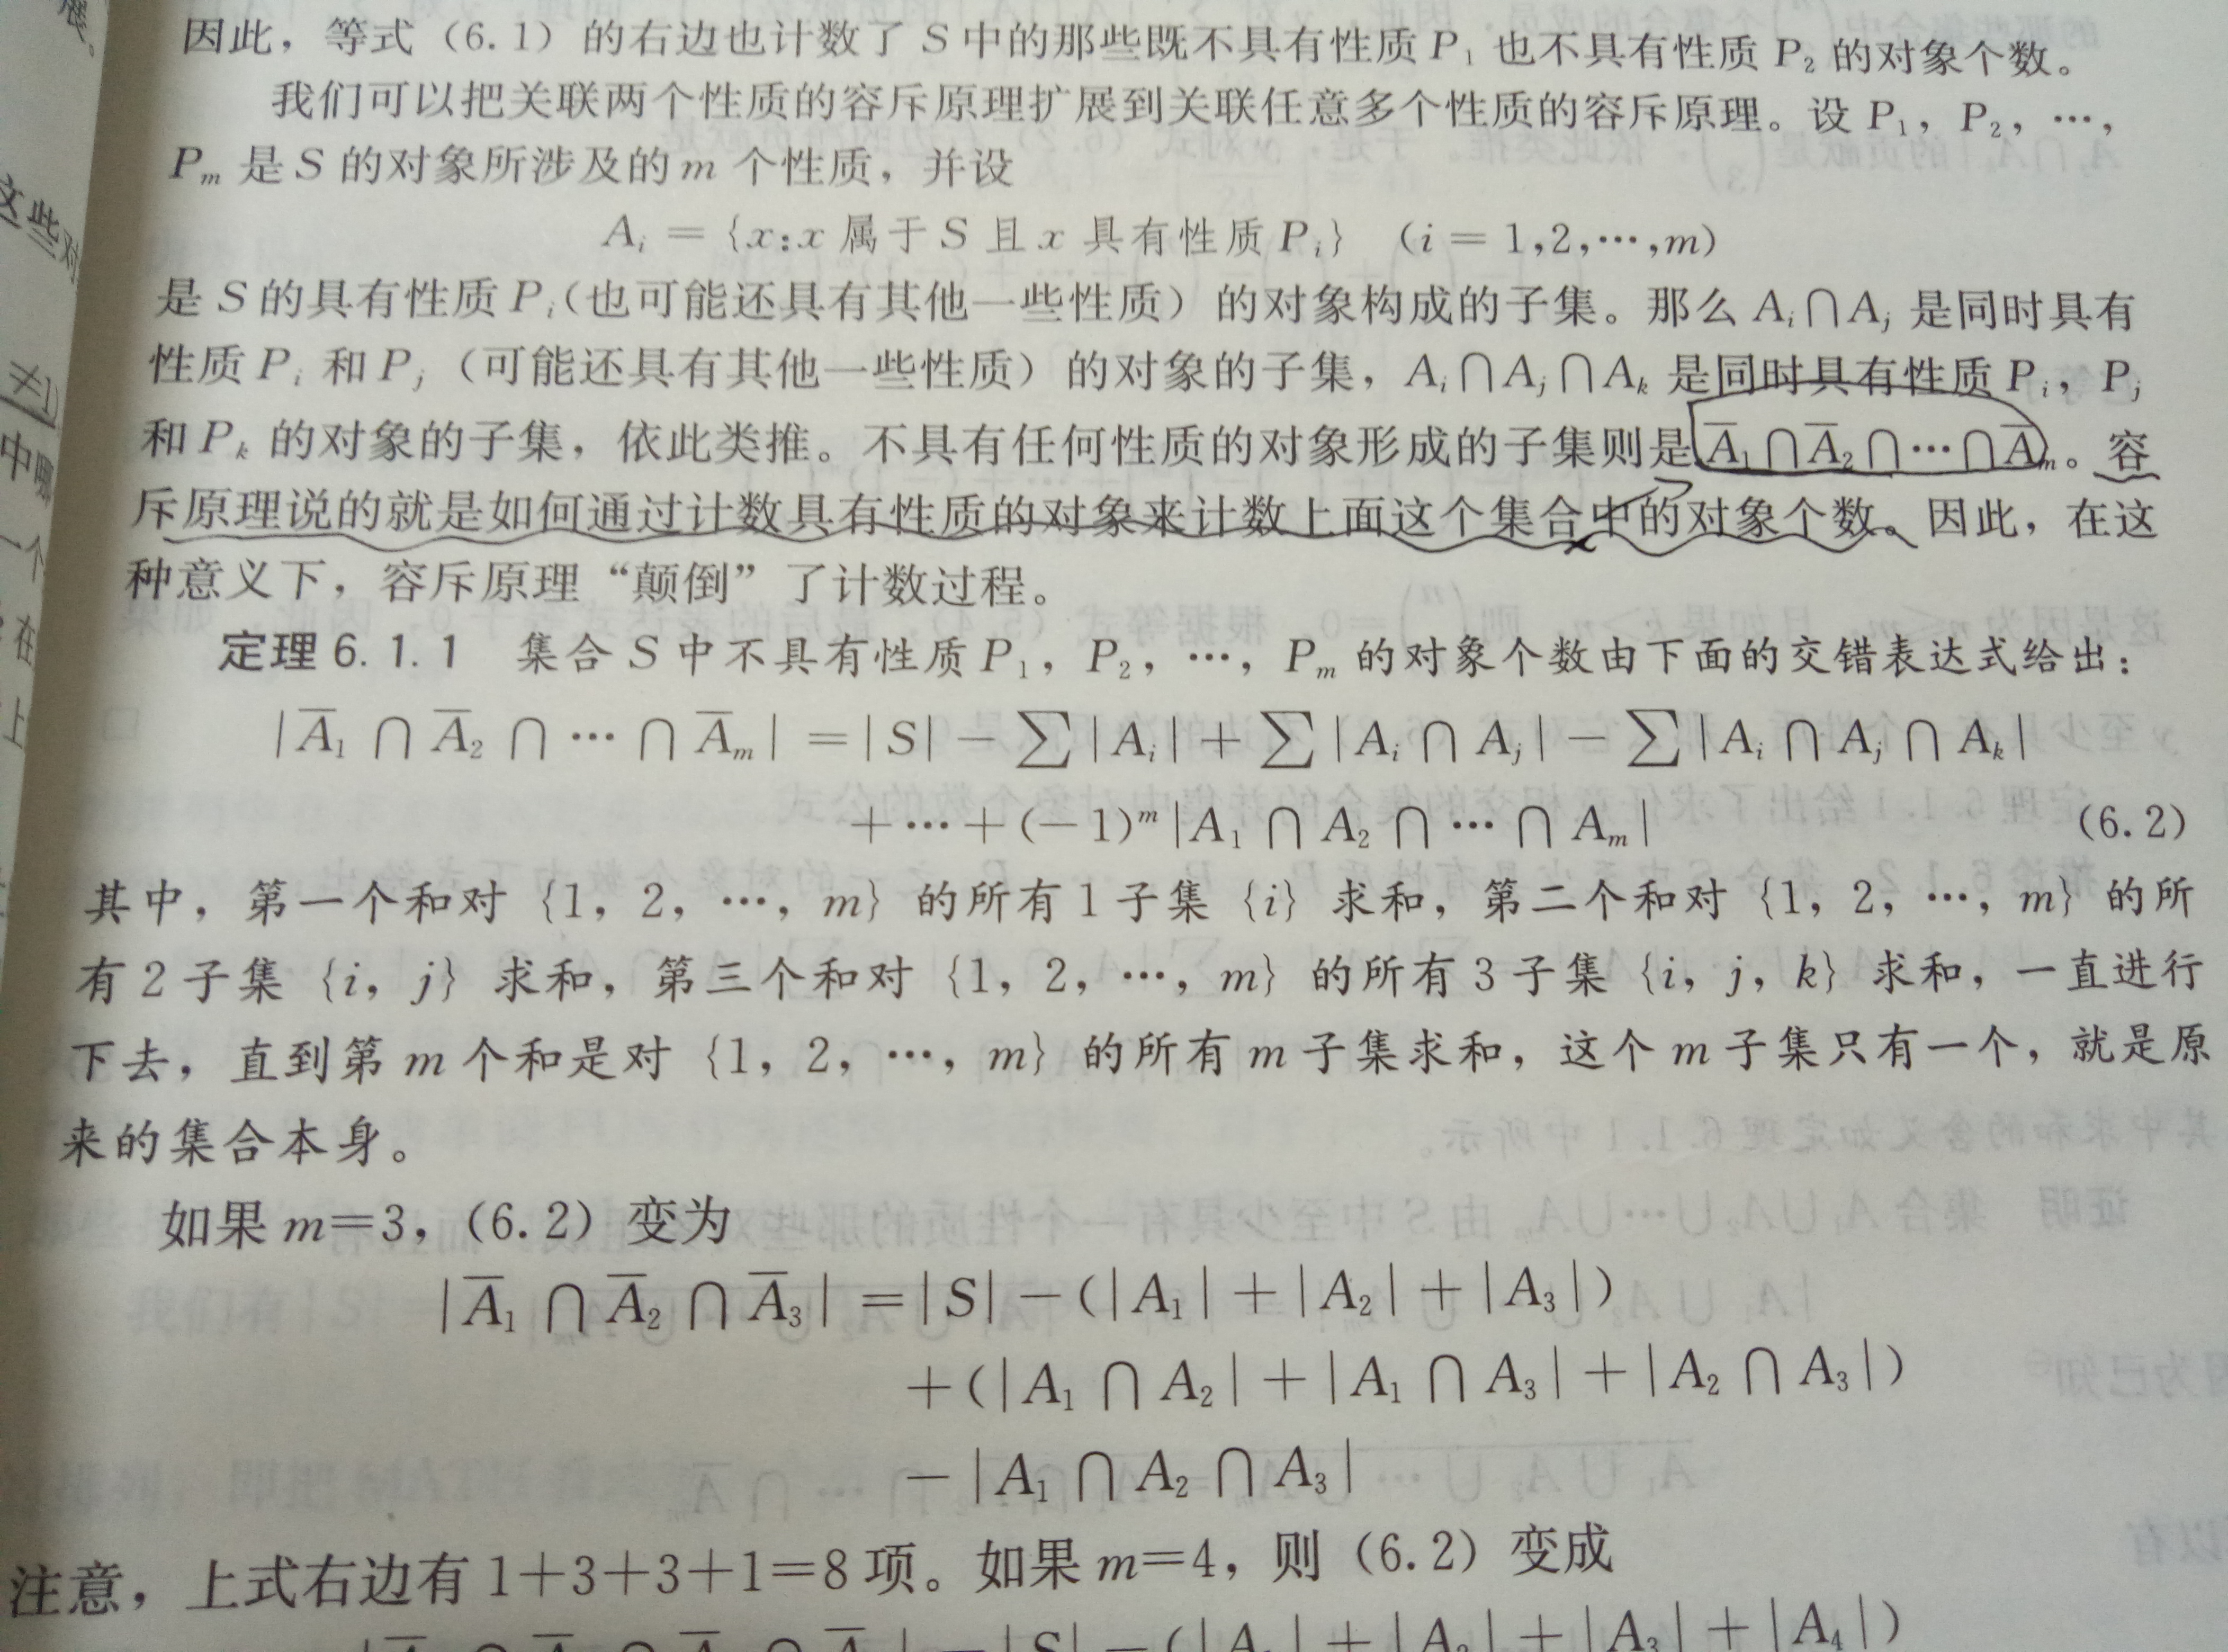 因此，等式（6.1）的右边也计数了 S 中的那些既不具有性质 P₁ 也不具有性质 P₂ 的对象个数。
我们可以把关联两个性质的容斥原理扩展到关联任意多个性质的容斥原理。设 P₁，P₂，…，
Pₘ 是 S 的对象所涉及的 m 个性质，并设
Aᵢ = {x:x 属于 S 且 x 具有性质 Pᵢ} (i = 1,2,…,m)
是 S 的具有性质 Pᵢ（也可能还具有其他一些性质）的对象构成的子集。那么 Aᵢ∩Aⱼ 是同时具有
性质 Pᵢ 和 Pⱼ（可能还具有其他一些性质）的对象的子集，Aᵢ∩Aⱼ∩Aₖ 是同时具有性质 Pᵢ，Pⱼ
和 Pₖ 的对象的子集，依此类推。不具有任何性质的对象形成的子集则是 A̅₁∩A̅₂∩…∩A̅ₘ。容
斥原理说的就是如何通过计数具有性质的对象来计数上面这个集合中的对象个数。因此，在这
种意义下，容斥原理“颠倒”了计数过程。
定理 6.1.1 集合 S 中不具有性质 P₁，P₂，…，Pₘ 的对象个数由下面的交错表达式给出：
|A̅₁ ∩ A̅₂ ∩ … ∩ A̅ₘ| = |S| − ∑|Aᵢ| + ∑|Aᵢ ∩ Aⱼ| − ∑|Aᵢ ∩ Aⱼ ∩ Aₖ|
+ … + (−1)ᵐ|A₁ ∩ A₂ ∩ … ∩ Aₘ| (6.2)
其中，第一个和对 {1，2，…，m} 的所有 1 子集 {i} 求和，第二个和对 {1，2，…，m} 的所
有 2 子集 {i，j} 求和，第三个和对 {1，2，…，m} 的所有 3 子集 {i，j，k} 求和，一直进行
下去，直到第 m 个和是对 {1，2，…，m} 的所有 m 子集求和，这个 m 子集只有一个，就是原
来的集合本身。
如果 m=3，(6.2) 变为
|A̅₁ ∩ A̅₂ ∩ A̅₃| = |S| − (|A₁| + |A₂| + |A₃|)
+ (|A₁ ∩ A₂| + |A₁ ∩ A₃| + |A₂ ∩ A₃|)
− |A₁ ∩ A₂ ∩ A₃|
注意，上式右边有 1+3+3+1=8 项。如果 m=4，则 (6.2) 变成
|S| − (|A₁| + |A₂| + |A₃| + |A₄|)